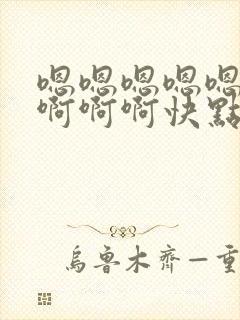 嗯嗯嗯嗯嗯
啊啊啊快點
烏魯木齊一重